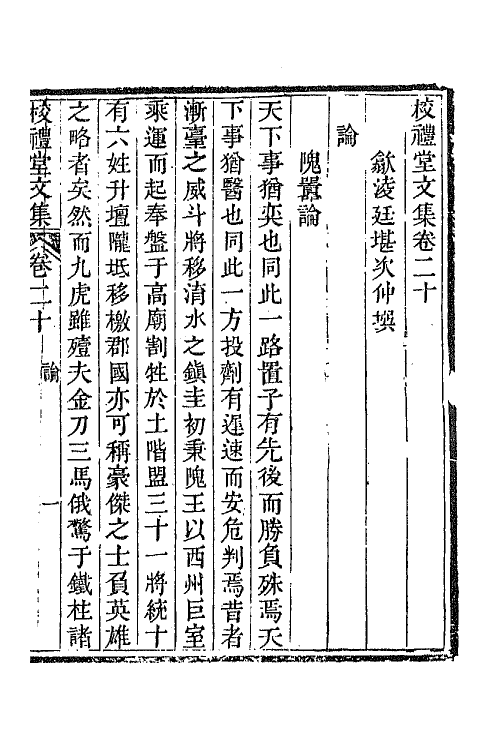 校禮堂文集卷二十
歙淩廷堪次仲撰
論
隗囂論
天下事猶奕也同此一路置子有先後而勝負殊焉天
下事猶醫也同此一方投劑有遲速而安危判焉昔者
漸臺之威斗將移淯水之鎮圭初秉隗王以西州巨室
乘運而起奉盤于高廟割牲於土階盟三十一將統十
有六姓升壇隴坻移檄郡國亦可稱豪傑之士負英雄
之略者矣然而九虎雖殪夫金刀三馬俄驚于鐵柱諸
校禮堂文集 卷二十 論 一